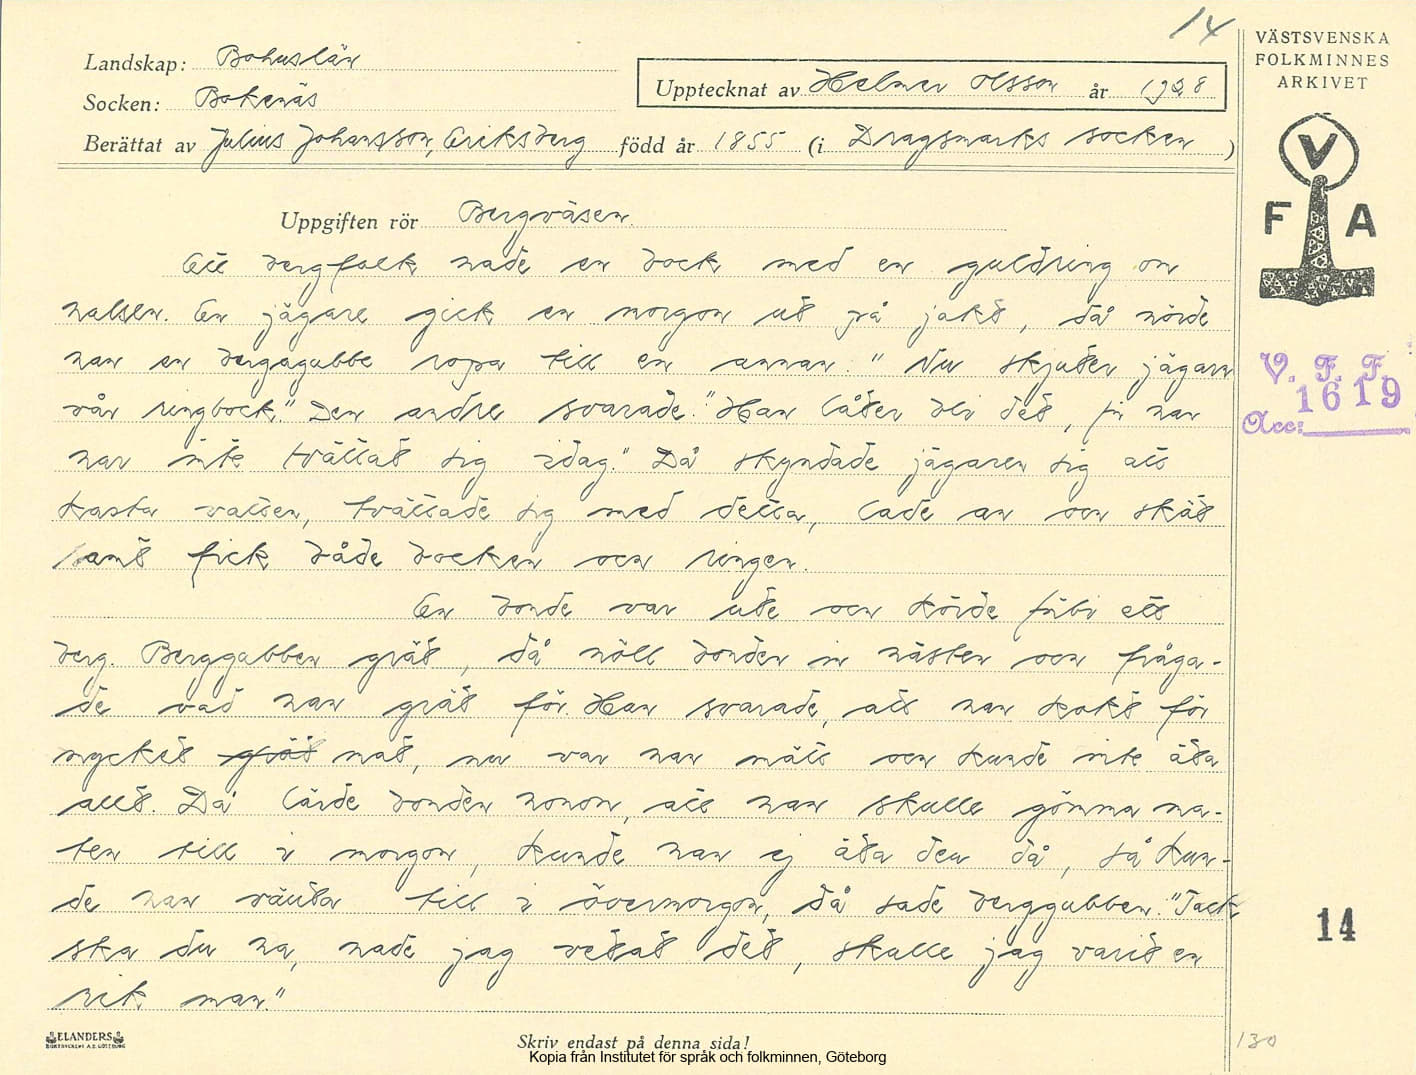 14
VÄSTSVENSKA
FOLKMINNES
ARKIVET
Landskap: Bohuslän
Socken: Bokenäs
Upptecknat av Helmer Olsson år 1928
Berättat av Julius Johansson, Eriksberg född år 1855 (i Dragsmarks socken)
V
F A
Uppgiften rör Bergväsen.
Ett bergfolk hade en bock med en guldring om
halsen. En jägare gick en morgon ut på jakt, då hörde
han en bergagubbe ropa till en annan: "Nu skjuter jägarn
vår ringbock." Den andre svarade: "Han låter bli det, för han
har inte tvättat sig idag." Då skyndade jägaren sig att
kasta vatten, tvättade sig med detta, lade an och sköt
samt fick både bocken och ringen.
En bonde var ute och körde förbi ett
berg. Berggubben grät, då höll bonden in hästen och fråga-
de vad han grät för. Han svarade, att han kokt för
mycket gröt mat, nu var han mätt och kunde inte äta
allt. Då lärde bonden honom, att han skulle gömma ma-
ten till i morgon, kunde han ej äta den då, så kun-
de han vänta till i övermorgon, då sade berggubben: "Tack
ska du ha, hade jag vetat det, skulle jag varit en
rik man."
V. F. F.
1619
Acc:
14
130
ELANDERS
BOKTRYCKERI A.B. GÖTEBORG
Skriv endast på denna sida!
Kopia från Institutet för språk och folkminnen, Göteborg